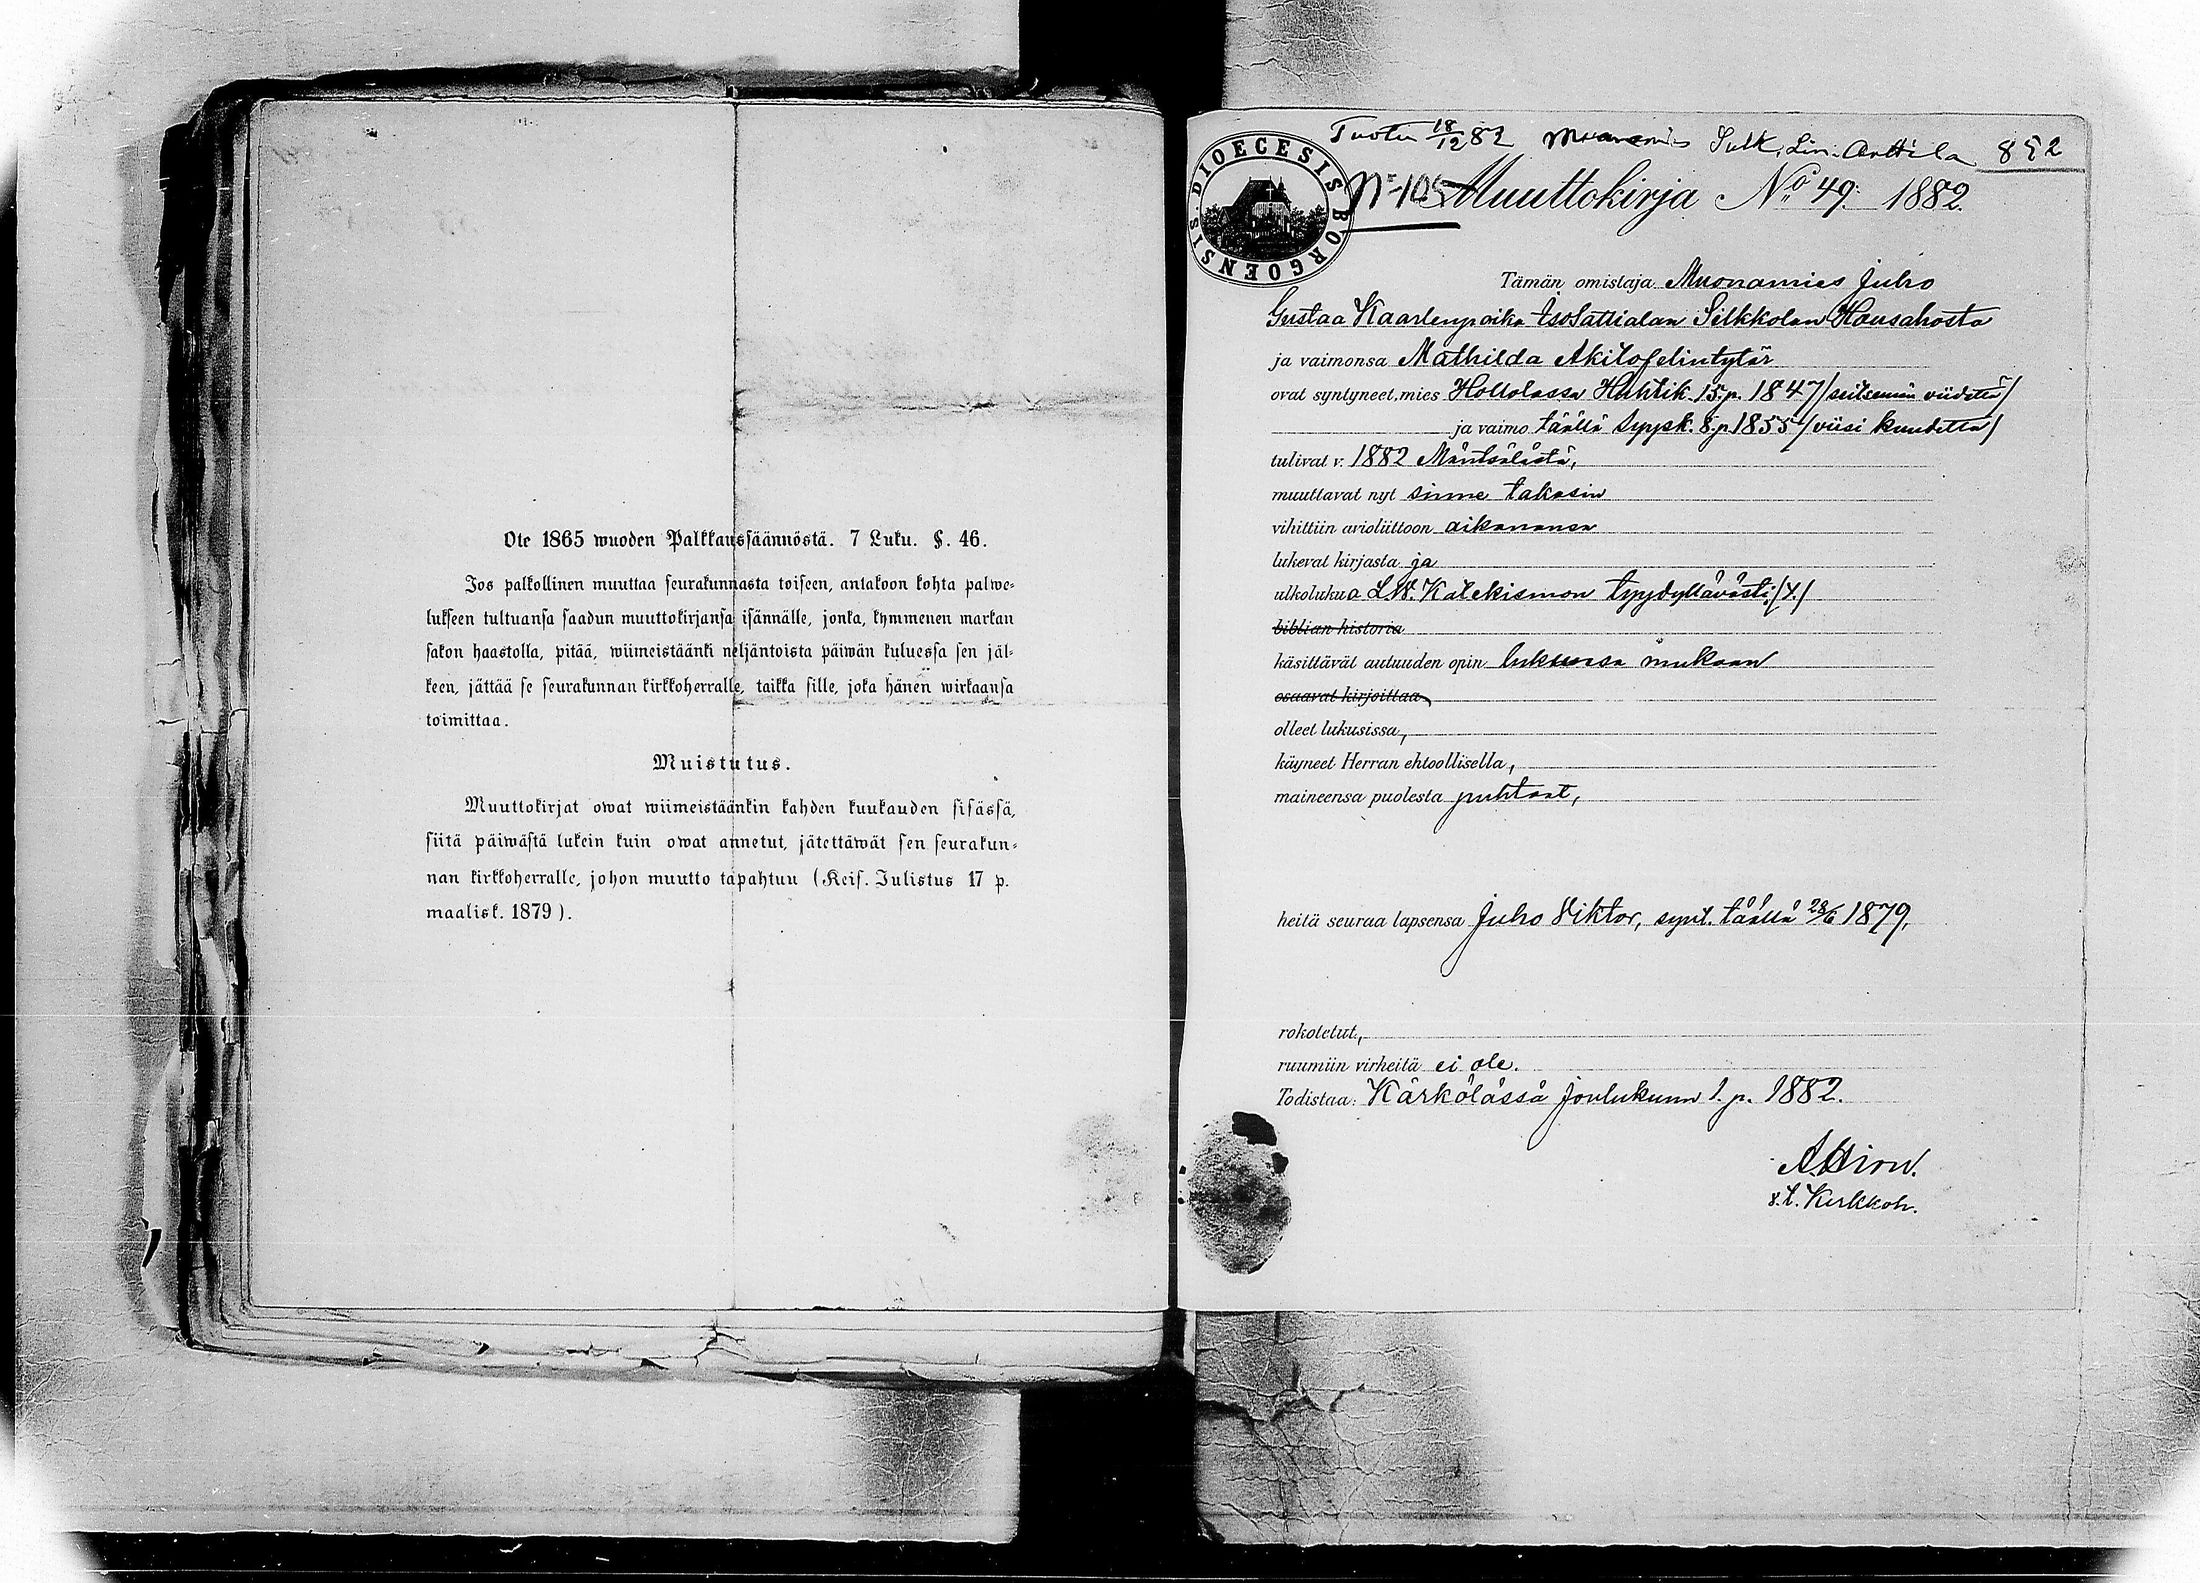 Ote 1865 wuoden Palkkaussäännöstä. 7 Luku. §. 46.
Jos palkollinen muuttaa seurakunnasta toiseen, antakoon kohta palwe-
lukseen tultuansa saadun muuttokirjansa isännälle, jonka, kymmenen markan
sakon haastolla, pitää, wiimeistäänki neljäntoista päiwän kuluessa sen jäl-
keen, jättää se seurakunnan kirkkoherralle, taikka sille, joka hänen wirkaansa
toimittaa.
Muistutus.
Muuttokirjat owat wiimeistäänkin kahden kuukauden sisässä,
siitä päiwästä lukein kuin owat annetut, jätettäwät sen seurakun-
nan kirkkoherralle, johon muutto tapahtuu (Keis. Julistus 17 p.
maalisk. 1879).
Tuotu 18/12 82 Muonamies Sulk, Lin. Anttila 852
DIOECESIS BORGOENSIS.
N:105 Muuttokirja No 49. 1882.
Tämän omistaja Muonamies Juho
Gustaa Kaarlenpoika IsoSattialan Silkkolan Hausahosta
ja vaimonsa Mathilda Akitofelintytär
ovat syntyneet, mies Hollolassa Huhtik. 15.p. 1847/seitsemän viidettä/
ja vaimo täällä Syysk. 8.p 1855/viisi kuudetta/
tulivat v. 1882 Mäntsälästä,
muuttavat nyt sinne takasin
vihittiin avioliittoon aikananse
lukevat kirjasta ja
ulkolukua L.W. Katekismon tyydyttävästi,/Y./
biblian historia
käsittävät autuuden opin lukunsa mukaan
osaavat kirjoittaa,
olleet lukusissa,
käyneet Herran ehtoollisella,
maineensa puolesta puhtaat,
heitä seuraa lapsensa Juho Viktor, synt. täällä 28/6 1879,
rokotetut,
ruumiin virheitä ei ole.
Todistaa: Kärkölässä Joulukuun 1. p. 1882.
A. Hirn.
v.t. Kirkkoh.